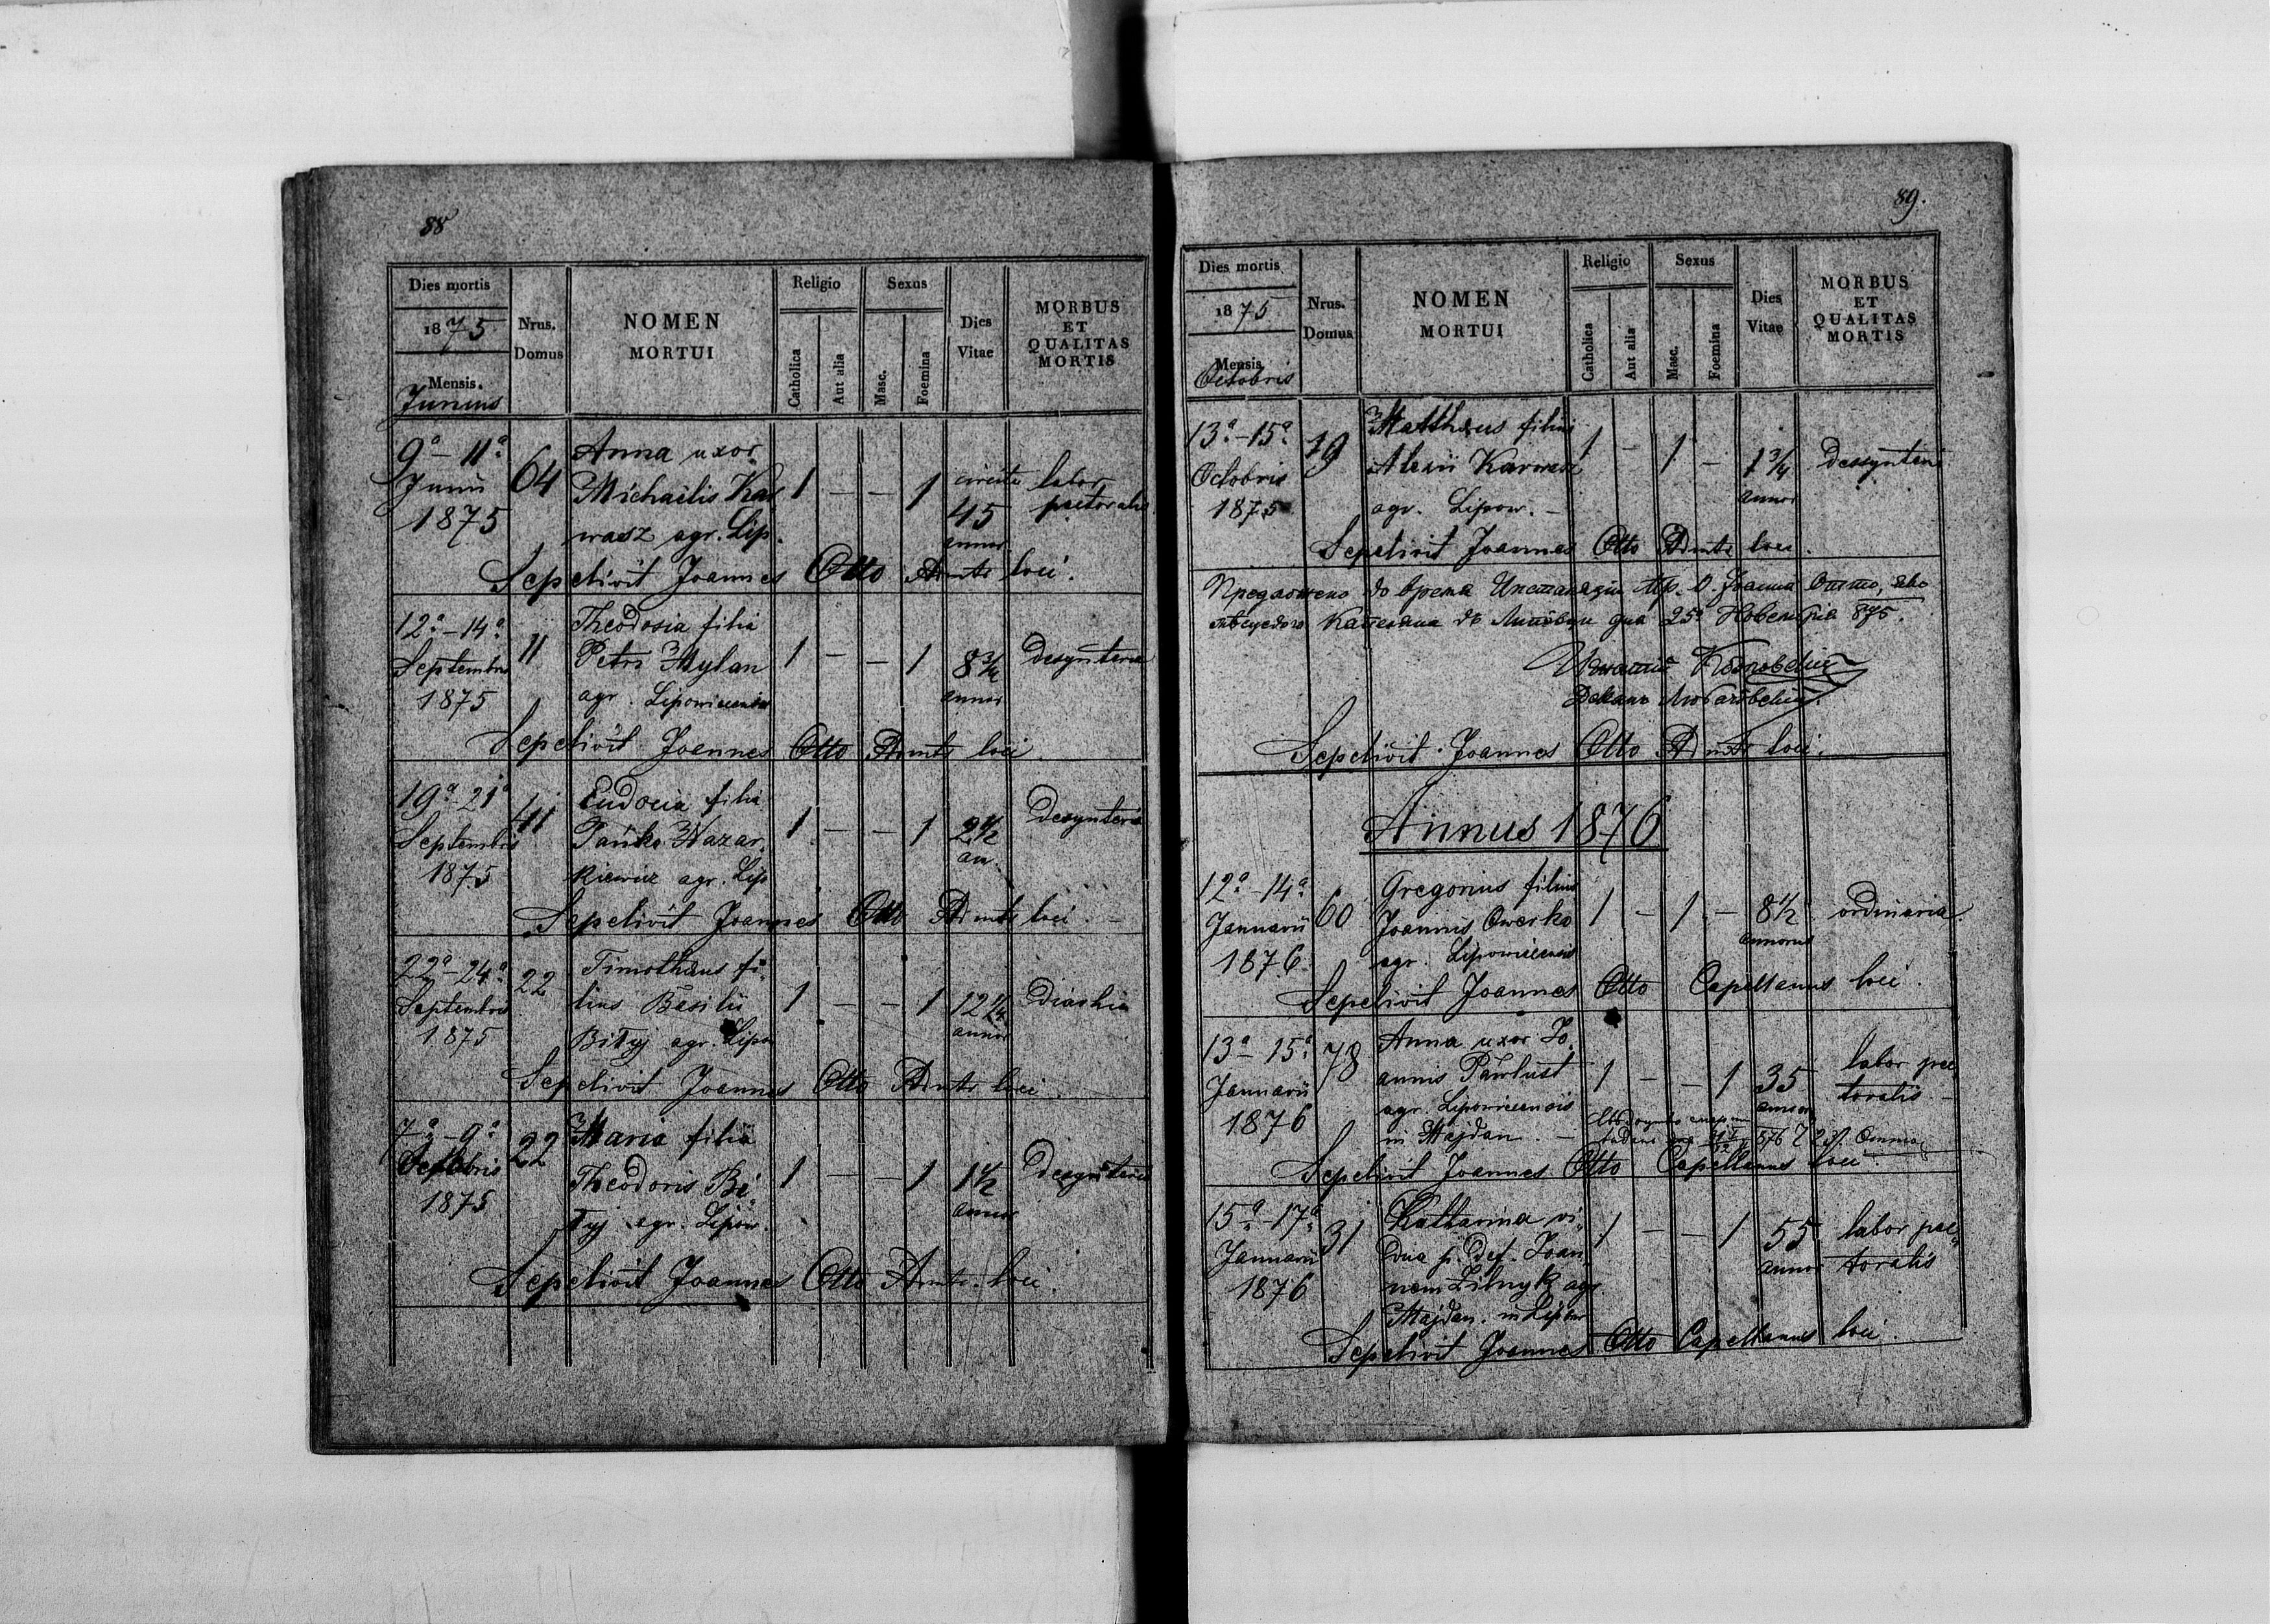 88
Dies mortis
1875
Mensis.
Junius
Nrus.
Domus
NOMEN
MORTUI
Religio
Catholica
Aut alia
Sexus
Masc.
Foemina
Dies
Vitae
MORBUS
ET
QUALITAS
MORTIS
9a – 11a
Junii
1875
64
Anna uxor
Michaelis Kar
wasz agr. Lip.
1 — — 1
circite
45
annor
labor
pectoralis
Sepelivit Joannes Otto Admtr loci.
12a – 14a
Septembris
1875
11
Theodosia filia
Petri Mylan
agr. Lipoviecensis
1 — — 1
8 3/4
annor
Desynteria
Sepelivit Joannes Otto Admtr loci.
19a 21a
Septembris
1875
41
Eudocia filia
Pańka Nazar,
kiewicz agr. Lip
1 — — 1
2 1/2
an.
Desynteria
Sepelivit Joannes Otto Admtr loci. —
22a – 24a
Septembris
1875
22
Timotheus fi,
lius Basilii
Bityj agr. Lipow
1 — — 1
12 1/4
annor
Diarhia
Sepelivit Joannes Otto Admtr loci
7a – 9a
Octobris
1875
22
Maria filia
Theodoris Bi,
tyj agr. Lipow.
1 — — 1
1 1/2
annor
Desynteria
Sepelivit Joannes Otto Admtr. loci.
89.
Dies mortis
1875
Mensis
Octobris
Nrus.
Domus
NOMEN
MORTUI
Religio
Catholica
Aut alia
Sexus
Masc.
Foemina
Dies
Vitae
MORBUS
ET
QUALITAS
MORTIS
13a – 15a
Octobris
1875
19
Mattheus filius
Alexii Karwasz
agr. Lipow. —
1 — 1 —
1 3/4
annor
desynteri
Sepelivit Joannes Otto Admtr loci.
Предложено до время Инсталяции Пр. О. Іоанна Отто,
Капелана до дня 25o Новембрія 875.
Декан
Sepelivit Joannes Otto Admtr loci.
Annus 1876
12a – 14a
Januarii
1876
60
Gregorius filius
Joannis Owerko
agr. Lipowiecensis
1 — 1 —
8 1/2
annorus
ordinaria.
Sepelivit Joannes Otto Capellanus loci.
13a – 15a
Januarii
1876
78
Anna uxor Jo,
annis Pawlust
agr. Lipowiecensis
in Majdan. —
1 — — 1
35
annor
labor pec,
toralis —
Sepelivit Joannes Otto Capellanus loci.
15a – 17a
Januarii
1876
31
Katharina vi,
dua p. def. Joan,
nem Zilnyk agr
Majdan. in Lipow
1 — — 1
55
annor
labor pec,
toralis
Sepelivit Joannes Otto Capellanus loci.